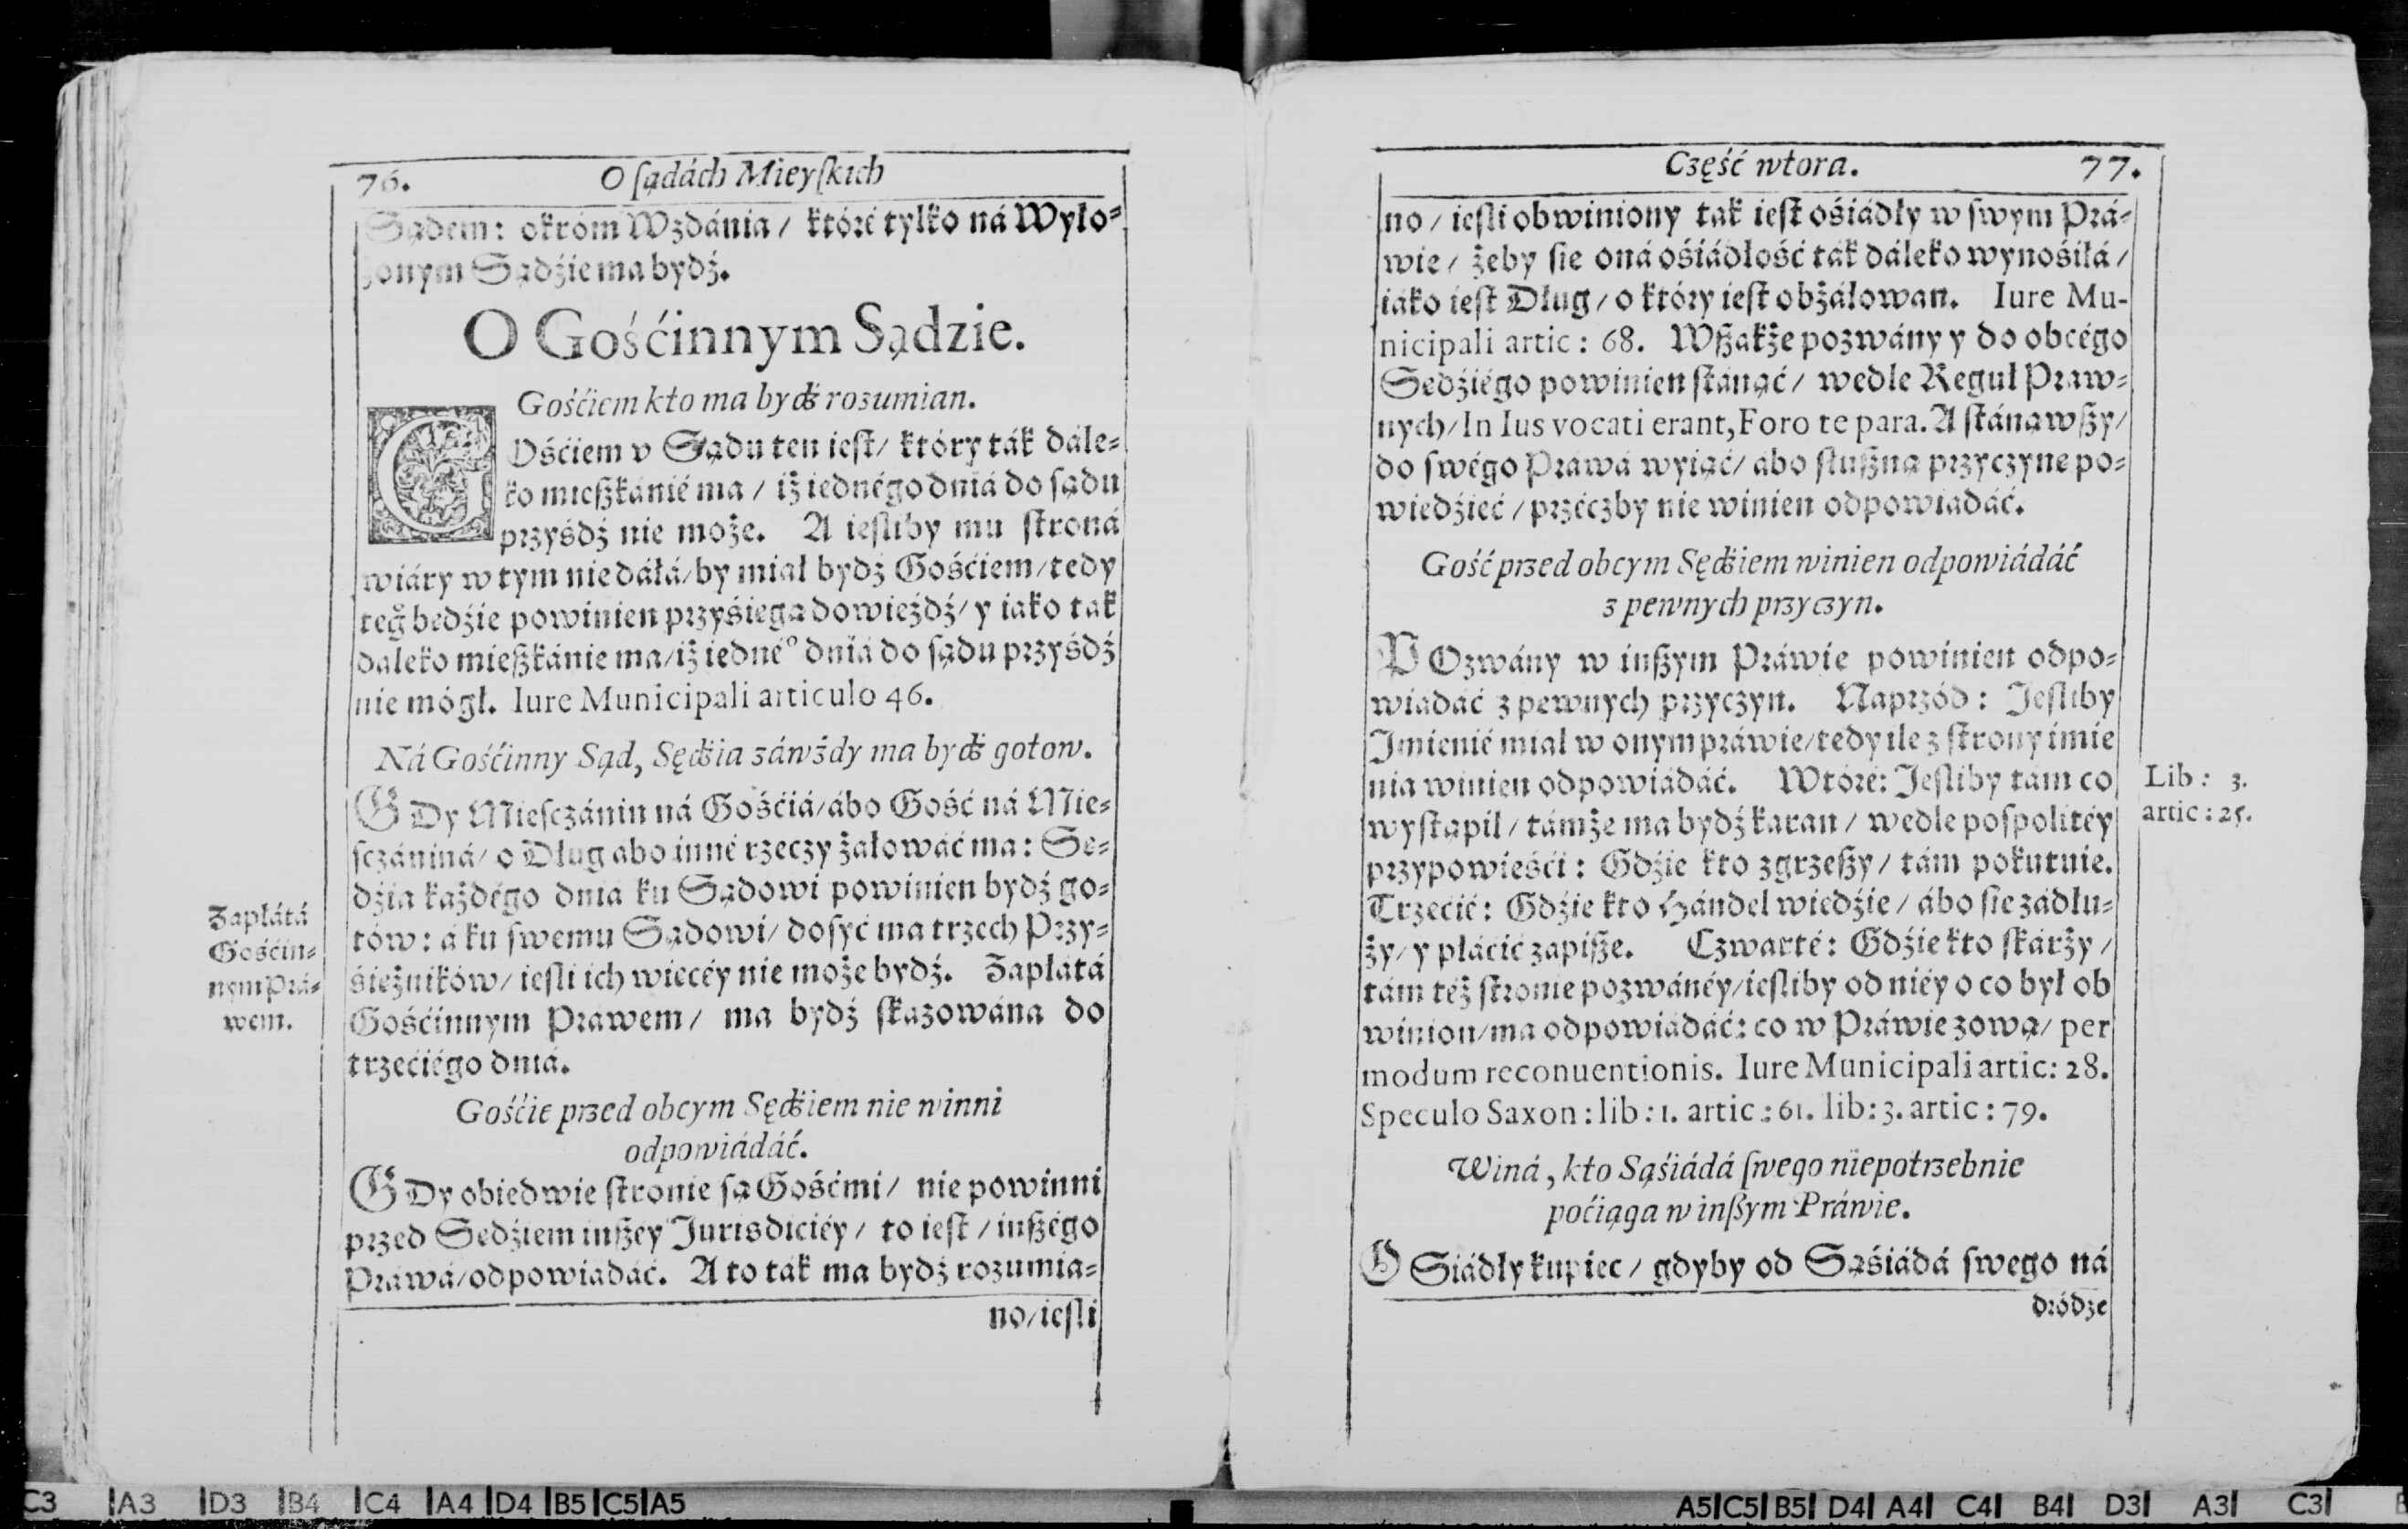 76. O ſądách Mieyſkich
Sądem: okróm Wzdánia / któré tylko ná Wyło⸗
żonym Sądźie ma bydź.
O Gośćinnym Sądzie.
Gośćiem kto ma bydź rozumian.
GOśćiem v Sądu ten ieſt / który ták dále⸗
ko mießkánié ma / iż iednégo dniá do ſądu
przyśdź nie może. A ieſliby mu ſtroná
wiáry w tym nie dáłá / by miał bydź Gośćiem / tedy
teğ bedźie powinien przyśiegą dowieźdź / y iako tak
daleko mießkánie ma / iż iedné° dniá do ſądu przyśdź
nie mógł. Iure Municipali articulo 46.
Ná Gośćinny Sąd, Sędźia záwżdy ma bydź gotow.
GDy Mieſczánin ná Gośćiá / ábo Gość ná Mie⸗
ſczániná / o Dług abo inné rzeczy żałowáć ma: Se⸗
dźia każdégo dnia ku Sądowi powinien bydź go⸗
tów: á ku ſwemu Sądowi / doſyć ma trzech Przy⸗
śiężników / ieſli ich wiecéy nie może bydź. Zapłátá
Gośćinnym Prawem / ma bydź ſkazowána do
trzećiégo dniá.
Zapłátá
Gośćin⸗
nym Prá⸗
wem.
Gośćie przed obcym Sędźiem nie winni
odpowiádáć.
GDy obiedwie ſtronie ſą Gośćmi / nie powinni
przed Sedźiem inßéy Jurisdiciéy / to ieſt / inßégo
Práwá / odpowiadáć. A to ták ma bydź rozumia⸗
no / ieſli
Część wtora. 77.
no / ieſli obwiniony tak ieſt ośiádły w ſwym Prá⸗
wie / żeby ſie oná ośiádłość ták dáleko wynośiłá /
iáko ieſt Dług / o który ieſt obżáłowan. Iure Mu-
nicipali artic: 68. Wßakże pozwány y do obcégo
Sedźiégo powinien ſtánąć / wedle Reguł Praw⸗
nych / In Ius vocati erant, Foro te para. A ſtánąwßy /
do ſwégo Práwá wyiąć / ábo ſłußną przyczyne po⸗
wiedźieć / przéczby nie winien odpowiadáć.
Gość przed obcym Sędźiem winien odpowiádáć
z pewnych przyczyn.
POzwány w inßym Práwie powinien odpo⸗
wiadáć z pewnych przyczyn. Naprzód: Jeſliby
Jmienié miał w onym práwie / tedy ile z ſtrony imie
nia winien odpowiádáć. Wtóré: Jeſliby tám co
wyſtąpił / támże ma bydź karan / wedle poſpolitéy
przypowieśći: Gdźie kto zgrzeßy / tám pokutuie.
Trzećié: Gdźie kto Hándel wiedźie / ábo ſie zádłu⸗
ży / y płáćić zapiße. Czwarté: Gdźie kto ſkárży /
tám też ſtronie pozwánéy / ieſliby od niéy o co był ob
winion / ma odpowiádáć: co w Práwie zową / per
modum reconuentionis. Iure Municipali artic: 28.
Speculo Saxon: lib: 1. artic: 61. lib: 3. artic: 79.
Lib: 3.
artic: 25.
Winá, kto Sąśiádá ſwego niepotrzebnie
poćiąga w inßym Práwie.
OSiádły kupiec / gdyby od Sąśiádá ſwego ná
dródze
C3 A3 D3 B4 C4 A4 D4 B5 C5 A5
A5 C5 B5 D4 A4 C4 B4 D3 A3 C3